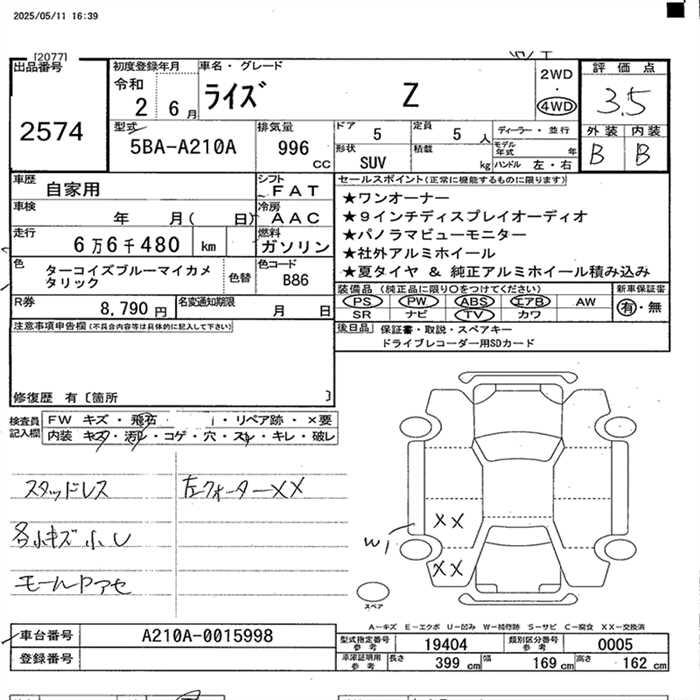 2025/05/11 16:39
[2077]
出品番号
2574
初度登録年月
令和
2 6月
車名・グレード
ライズ Z
2WD
・
4WD
評価点
3.5
外装 内装
B B
型式
5BA-A210A
排気量
996 cc
ドア 5
定員 5 人
形状 SUV
積載 kg
ディーラー・並行
モデル年式 年
ハンドル 左・右
車歴 自家用
シフト FAT
車検 年 月( 日)
冷房 AAC
走行 6万6千480 km
燃料 ガソリン
色 ターコイズブルーマイカメタリック
色替
色コード B86
R券 8,790円
名変通知期限 月 日
セールスポイント(正常に機能するものに限ります)
★ワンオーナー
★9インチディスプレイオーディオ
★パノラマビューモニター
★社外アルミホイール
★夏タイヤ & 純正アルミホイール積み込み
装備品 (純正品に限り○をつけてください)
PS PW ABS エアB AW
SR ナビ TV カワ
新車保証書
有・無
後日品 保証書・取説・スペアキー
ドライブレコーダー用SDカード
注意事項申告欄(不具合内容等は具体的に記入して下さい)
修復歴 有〔箇所 〕
検査員記入欄
FW キズ・飛石・リペア跡・×要
内装 キズ・汚レ・コゲ・穴・スレ・キレ・破レ
スタッドレス
左クォーターXX
各小キズ 小U
モールヤアセ
XX
W1
XX
スペア
A-キズ E-エクボ U-凹み W-補修跡 S-サビ C-腐食 XX-交換済
車台番号 A210A-0015998
登録番号
型式指定番号 参考 19404
類別区分番号 参考 0005
車庫証明用 参考 長さ 399 cm 幅 169 cm 高さ 162 cm